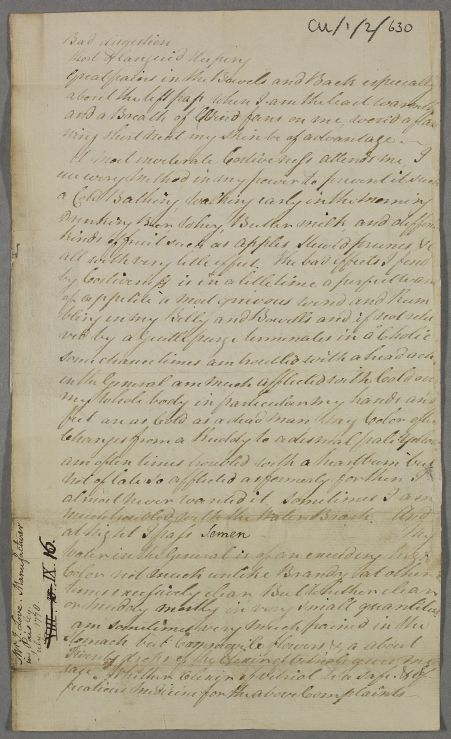 CU/1/2/630
Bad digestion
Short & languid Sleeping
Great pains in the Bowels and Back especially
about the left pap when I am the least
and a Breath of Wind fans on me would a
shirt next my skin be of advantage
A most immoderate Costiveness attends me I
use every method in my power to prevent it such
as Cold Bathing walking early in the morning
Drinking Beer Whey Butter milk and different
kinds of fruit such as apples Stewed prunes &c
all with very little effect. The bad effects I find
by Costiveness is in a little time a perfect want
of appetite a most grievous wind and Rum
bling in my Belly and Bowells and if not relie
ved by a gentle purge terminates in a Cholic
some times am troubled with a head ach
in the General am much afflicted with Cold over
my whole body in particular my hands and
feet are as Cold as a dead man My Color often
Changes from a ruddy to a dismal pale Yellow
am often times troubled with a heartburn but
not of late so afflicted as formerly for then I
almost never wanted it Sometimes I am
much troubled with the Water Brash. And
at Night I pass Semen My
Water in the General is of an exceeding high
Color not much unlike Brandy, at other
times excessively clear But whether clear
or muddy mostly in very small quantities
am sometimes very much pained in the
Stomach but Camomile flowers & about
drops of the Elixir of Vitriol gives me
ease. Whether Elixir of Vitriol is a safe & eff
icatious medicine for the above Complaints
Love. Manufacturer
Paisley
1770.
IX. 16.